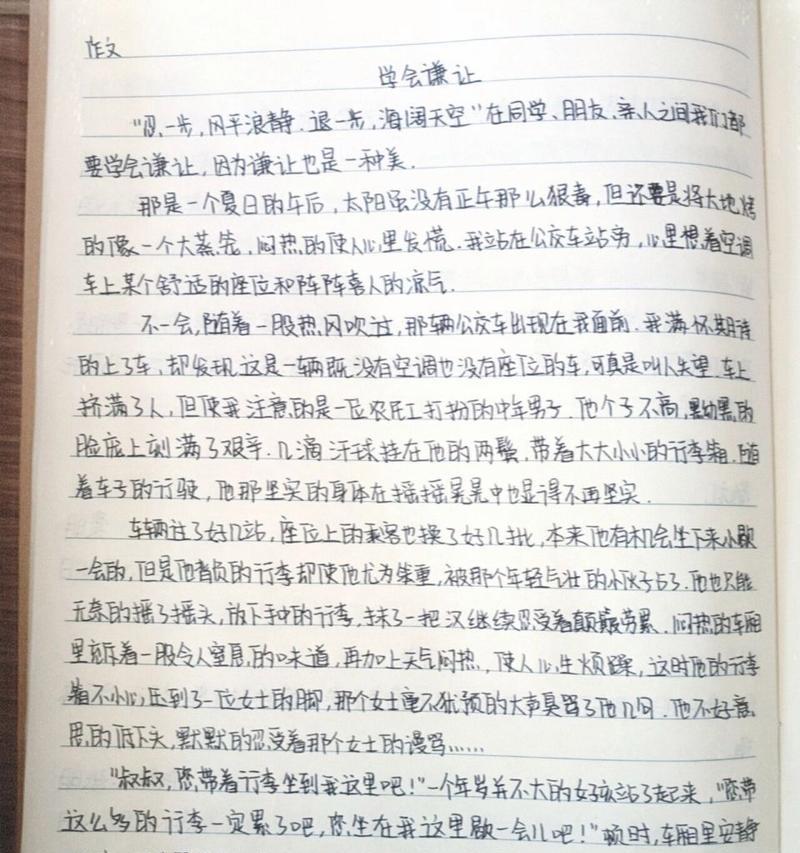 作文
学会谦让
"忍一步,风平浪静.退一步,海阔天空"在同学、朋友、亲人之间我们都
要学会谦让,因为谦让也是一种美.
那是一个夏日的午后,太阳虽没有正午那么狠毒,但还要是将大地烤
的像一个大蒸笼,闷热的使人心里发慌.我站在公交车站旁,心里想着空调
车上某个舒适的座位和阵阵喜人的凉气.
不一会,随着一股热风吹过,那辆公交车出现在我面前.我满怀期待
的上了车,却发现这是一辆既没有空调也没有座位的车,可真是叫人失望.车上
挤满了人,但使我注意的是一位农民工打扮的中年男子.他个子不高,黝黑的
脸庞上刻满了艰辛.几滴汗球挂在他的两鬓,带着大大小小的行李箱.随
着车子的行驶,他那坚实的身体在摇摇晃晃中也显得不再坚实.
车辆过了好几站,座位上的乘客也换了好几批,本来他有机会坐下来小歇
一会的,但是他背负的行李却使他尤为笨重,被那个年轻气壮的小伙子占了.他也只能
无奈的摇了摇头,放下手中的行李,抹了一把汉继续忍受着颠簸劳累.闷热的车厢
里充斥着一股令人窒息的味道,再加上天气闷热,使人心生烦躁,这时他的行李
箱不小心压到了一位女士的脚,那个女士毫不犹预的大声臭骂了他几句.他不好意
思的低下头,默默的忍受着那个女士的谩骂……
"叔叔,您带着行李坐到我这里吧!"一个年岁并不大的女孩站了起来,"您带
这么多的行李一定累了吧,您坐在我这里歇一会儿吧!"顿时,车厢里安静